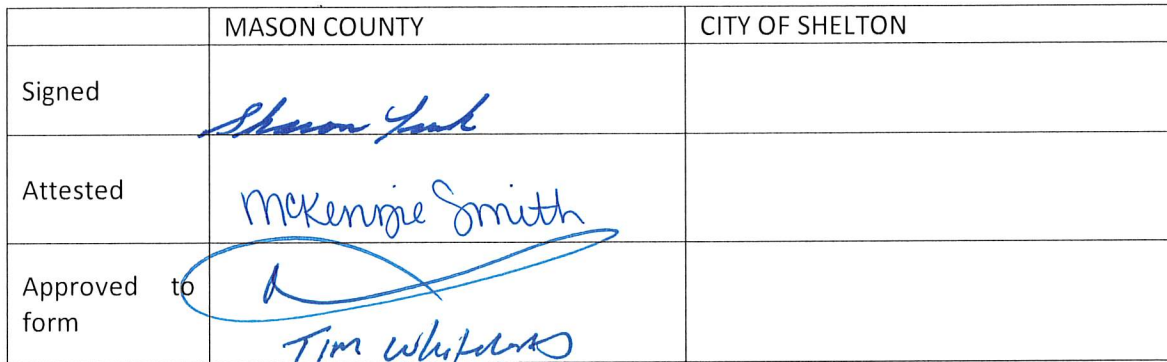 MASON COUNTY CITY OF SHELTON
Signed Sharon
Attested McKenzie Smith
Approved to
form
Tim Whitehead